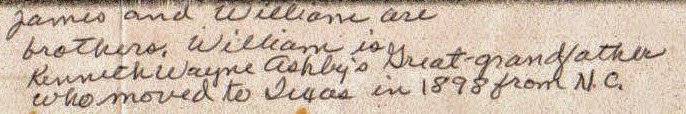 James and William are
brothers. William is
Kenneth Wayne Ashby's Great-grandfather
who moved to Texas in 1898 from N.C.